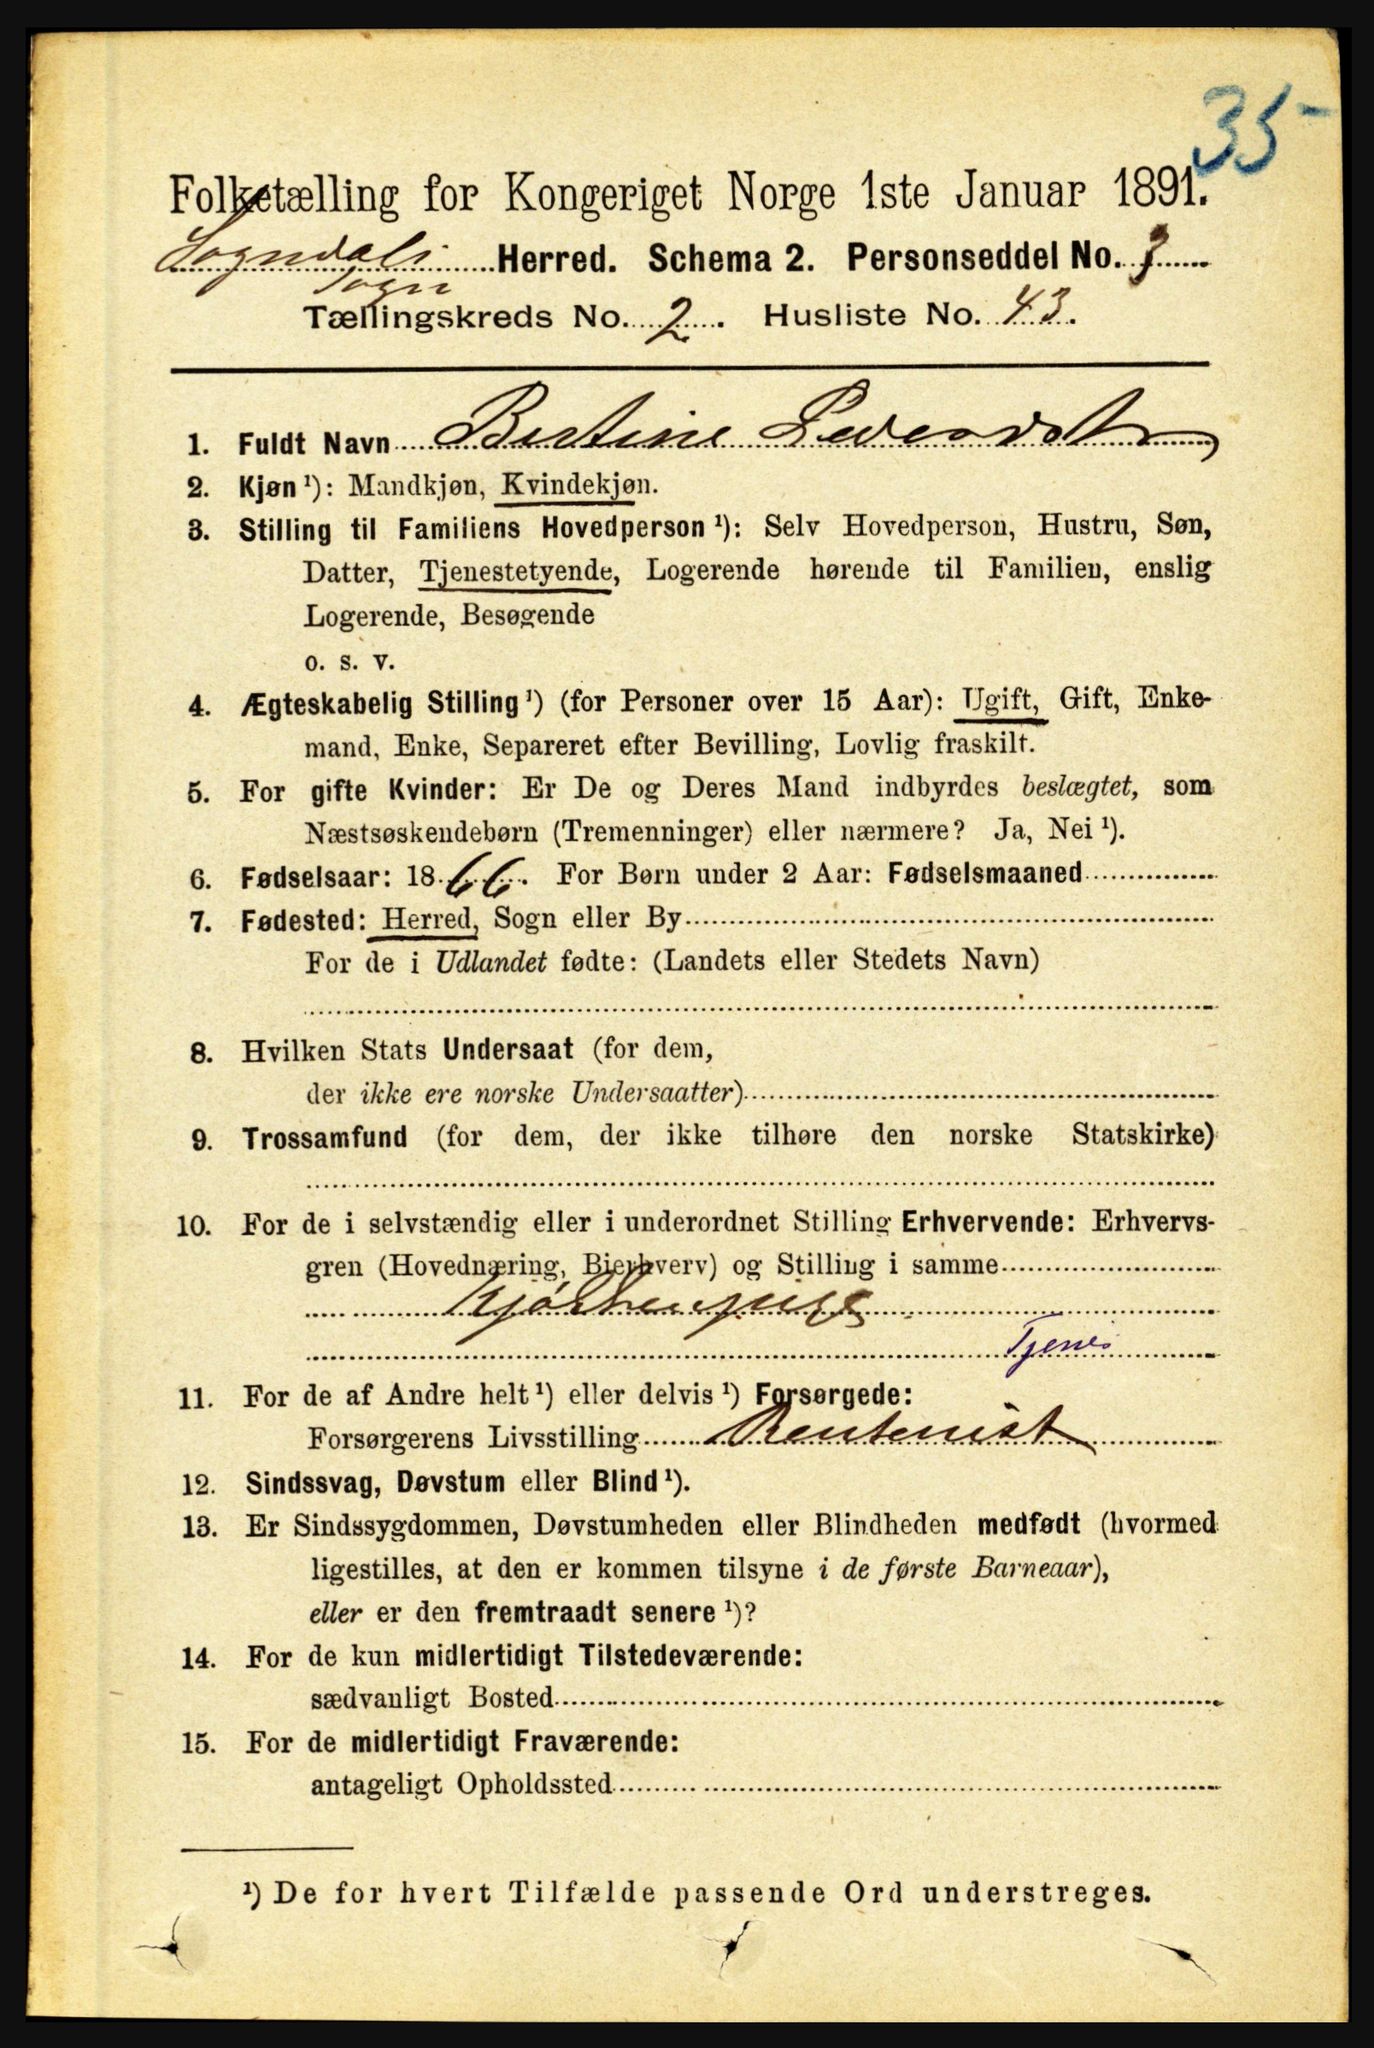 35
Folketælling for Kongeriget Norge 1ste Januar 1891.
Sogndals Herred. Schema 2. Personseddel No. 3
Sogn
Tællingskreds No. 2. Husliste No. 43.
1. Fuldt Navn Bertine Pedersdtr
2. Kjøn ¹): Mandkjøn, Kvindekjøn.
3. Stilling til Familiens Hovedperson ¹): Selv Hovedperson, Hustru, Søn,
Datter, Tjenestetyende, Logerende hørende til Familien, enslig
Logerende, Besøgende
o. s. v.
4. Ægteskabelig Stilling ¹) (for Personer over 15 Aar): Ugift, Gift, Enke-
mand, Enke, Separeret efter Bevilling, Lovlig fraskilt.
5. For gifte Kvinder: Er De og Deres Mand indbyrdes beslægtet, som
Næstsøskendebørn (Tremenninger) eller nærmere? Ja, Nei ¹).
6. Fødselsaar: 1866. For Børn under 2 Aar: Fødselsmaaned
7. Fødested: Herred, Sogn eller By
For de i Udlandet fødte: (Landets eller Stedets Navn)
8. Hvilken Stats Undersaat (for dem,
der ikke ere norske Undersaatter)
9. Trossamfund (for dem, der ikke tilhøre den norske Statskirke)
10. For de i selvstændig eller i underordnet Stilling Erhvervende: Erhvervs-
gren (Hovednæring, Bierhverv) og Stilling i samme
Kjøkkenpige
Tjenes
11. For de af Andre helt ¹) eller delvis ¹) Forsørgede:
Forsørgerens Livsstilling Rentenist
12. Sindssvag, Døvstum eller Blind ¹).
13. Er Sindssygdommen, Døvstumheden eller Blindheden medfødt (hvormed
ligestilles, at den er kommen tilsyne i de første Barneaar),
eller er den fremtraadt senere ¹)?
14. For de kun midlertidigt Tilstedeværende:
sædvanligt Bosted
15. For de midlertidigt Fraværende:
antageligt Opholdssted
¹) De for hvert Tilfælde passende Ord understreges.